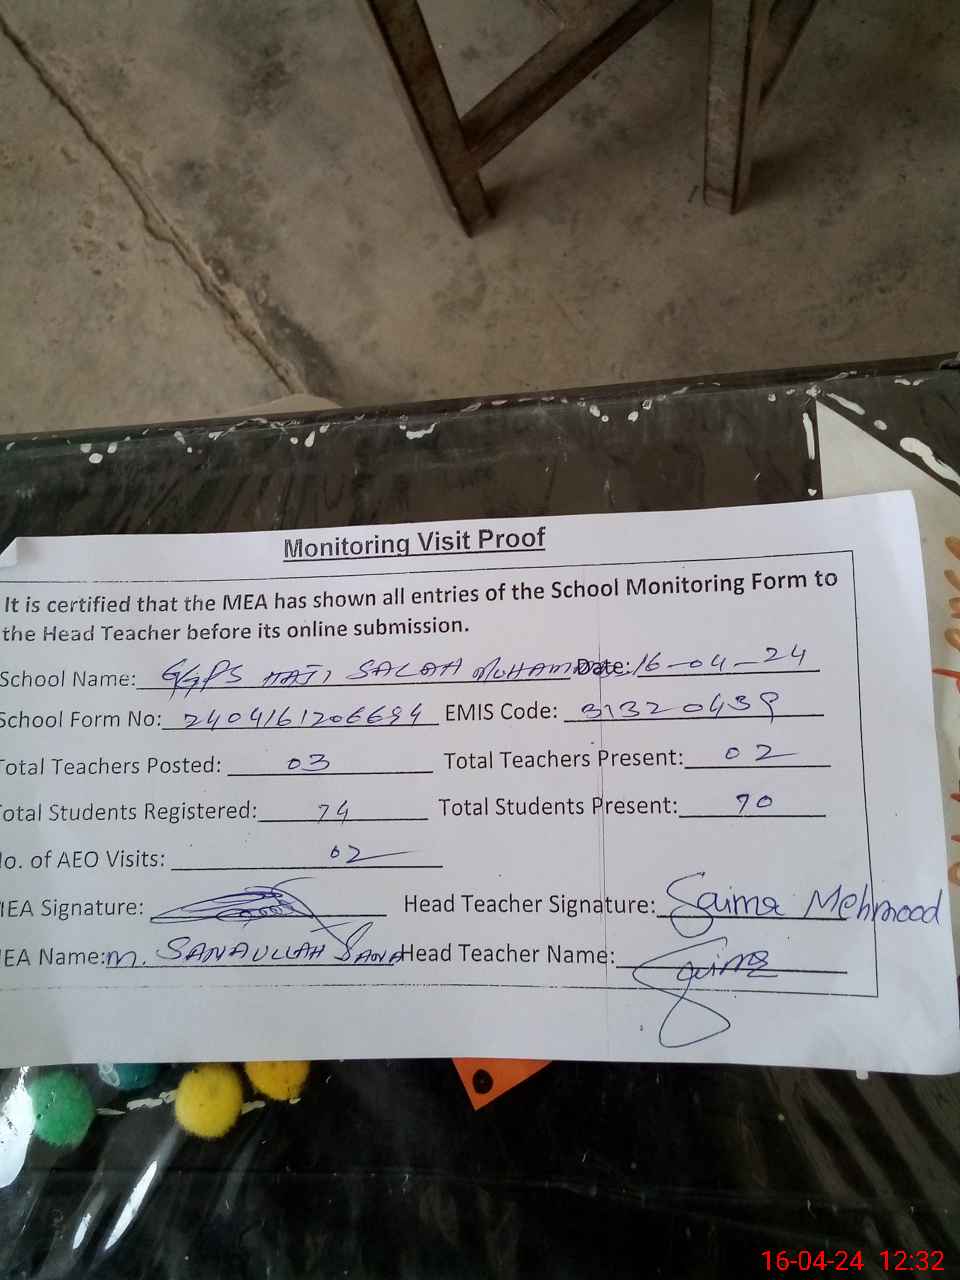 Monitoring Visit Proof
It is certified that the MEA has shown all entries of the School Monitoring Form to
the Head Teacher before its online submission.
School Name: GGPS HAJI SALAH MUHAMM Date: 16-04-24
School Form No: 2404161206694 EMIS Code: 31320439
Total Teachers Posted: 03 Total Teachers Present: 02
Total Students Registered: 74 Total Students Present: 70
No. of AEO Visits: 02
MEA Signature: Head Teacher Signature: Saima Mehmood
MEA Name: M. SANAULLAH SANA Head Teacher Name: Saima
16-04-24 12:32